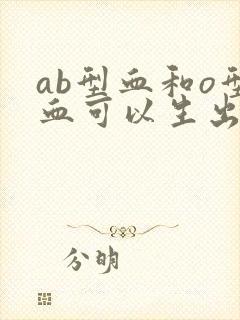 ab型血和o型
血可以生出
分明